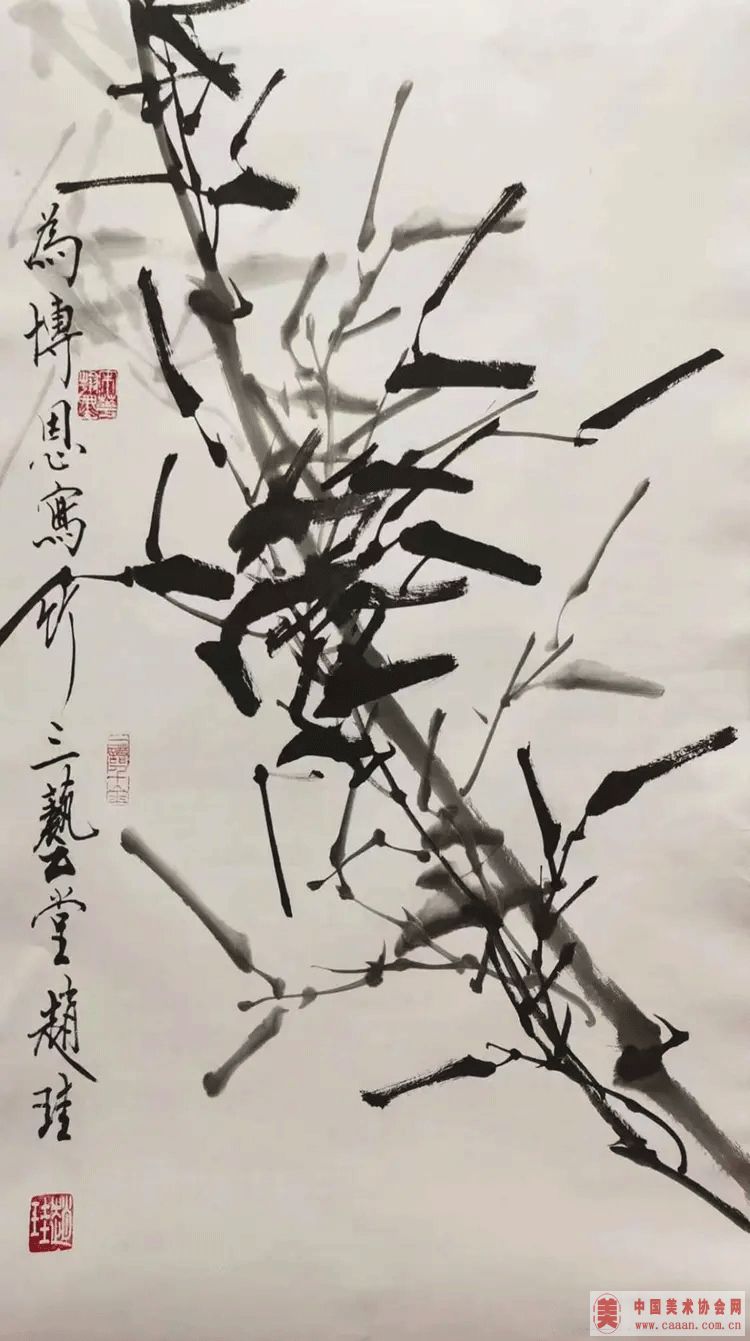 為博恩寫竹三藝堂趙珪
趙珪
美 中国美术协会网
www.caaan.com.cn